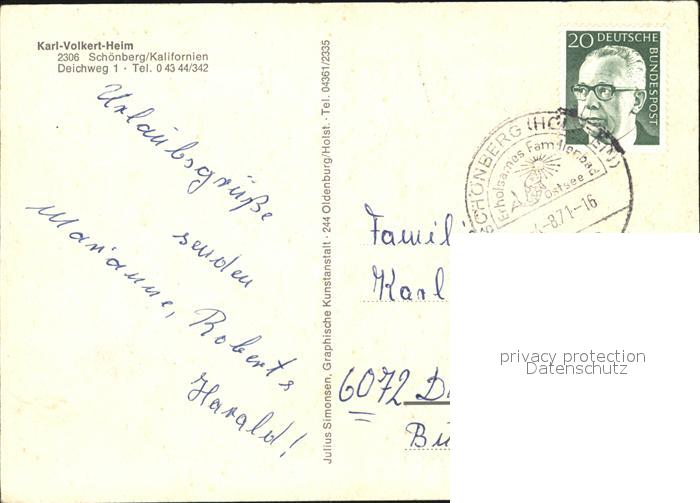 Karl-Volkert-Heim
2306 Schönberg/Kalifornien
Deichweg 1 · Tel. 0 43 44/342
Urlaubsgrüße
senden
Marianne, Robert &
Harald!
Julius Simonsen, Graphische Kunstanstalt · 244 Oldenburg/Holst. · Tel. 04361/2335
20 DEUTSCHE
BUNDESPOST
SCHÖNBERG (HOLSTEIN)
Erholsames Familienbad
Ostsee
-8.71-16
Famil
Karl
6072 D
Bü
privacy protection
Datenschutz